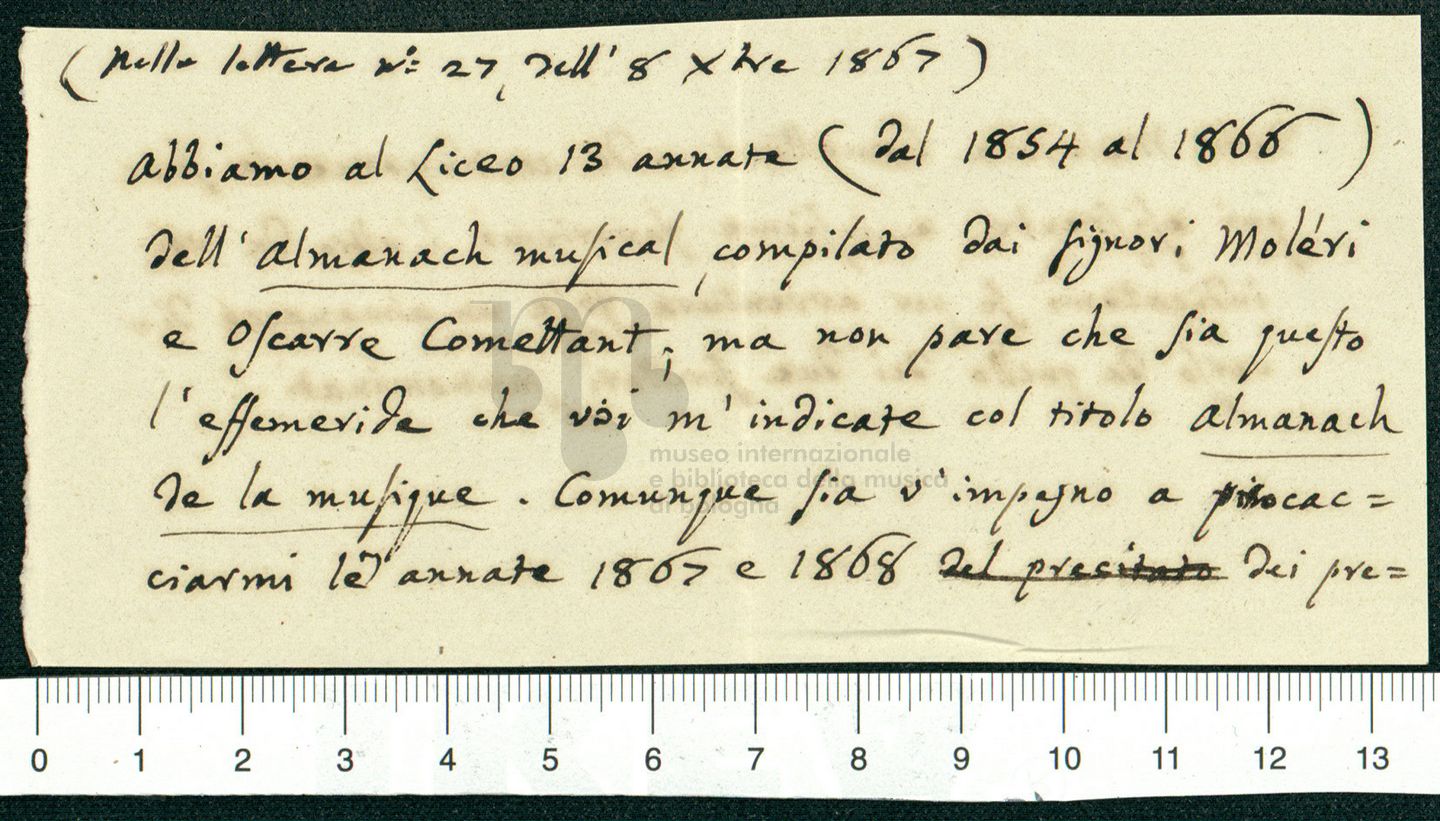 (Nella lettera n.º 27, dell' 8 Xbre 1867)
abbiamo al Liceo 13 annate (dal 1854 al 1866)
dell'almanach musical, compilato dai signori Moléri
e Oscarre Comettant; ma non pare che sia questo
l'effemeride che voi m'indicate col titolo almanach
de la musique. Comunque sia v'impegno a procac=
ciarmi le annate 1867 e 1868 del precitato dei pre=
museo internazionale
e biblioteca della musica
di bologna
0 1 2 3 4 5 6 7 8 9 10 11 12 13